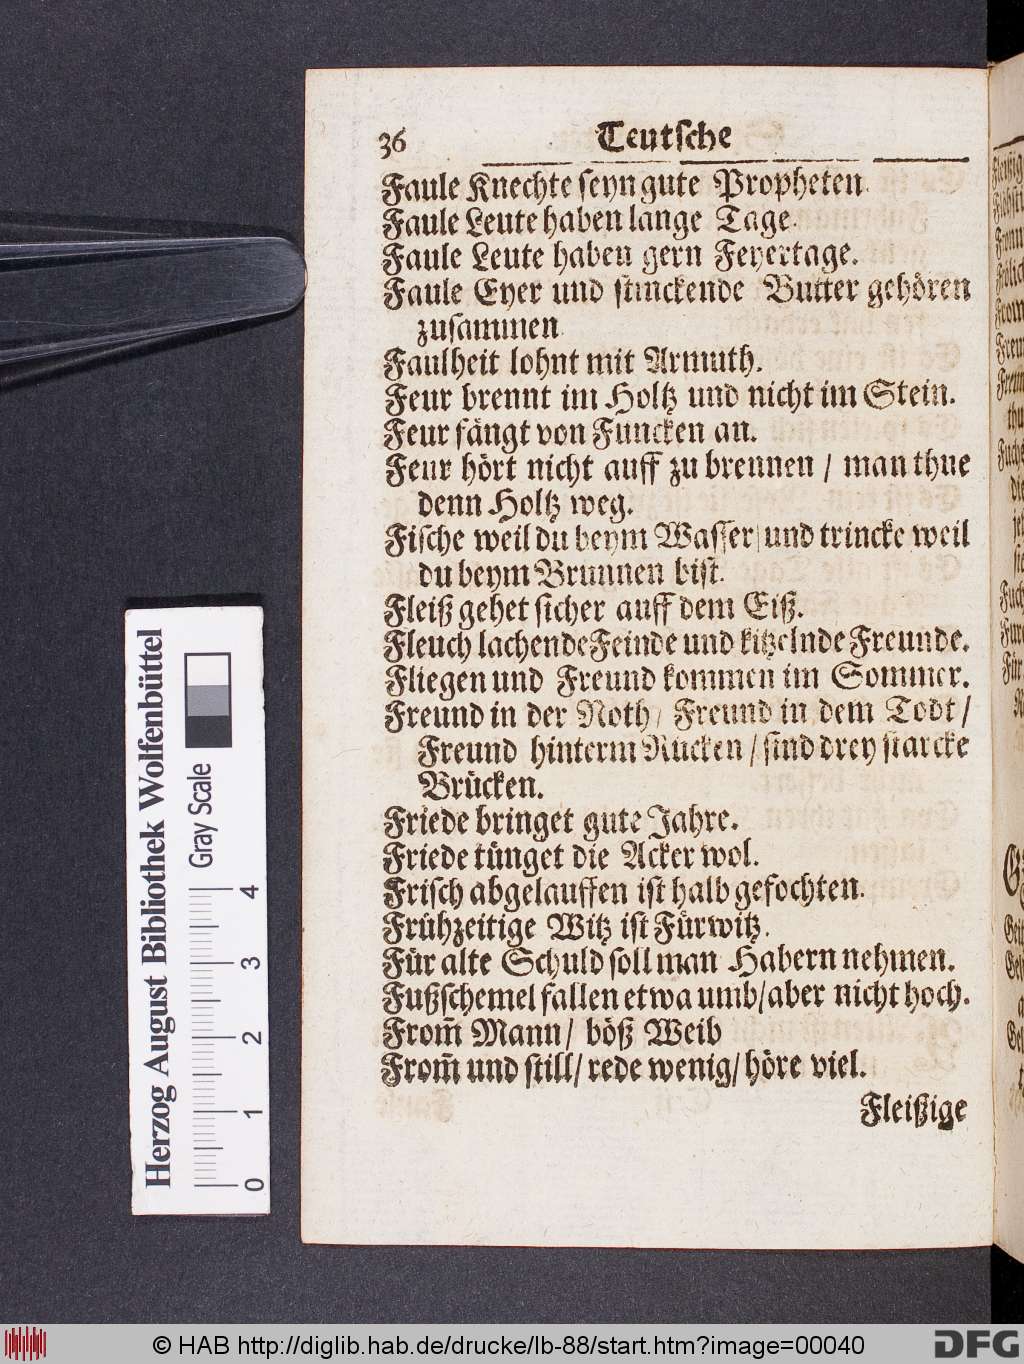 36 Teutsche
Faule Knechte seyn gute Propheten.
Faule Leute haben lange Tage.
Faule Leute haben gern Feyertage.
Faule Eyer und stinckende Butter gehören
zusammen.
Faulheit lohnt mit Armuth.
Feur brennt im Holtz und nicht im Stein.
Feur fängt von Funcken an.
Feur hört nicht auff zu brennen / man thue
denn Holtz weg.
Fische weil du beym Wasser / und trincke weil
du beym Brunnen bist.
Fleiß gehet sicher auff dem Eiß.
Fleuch lachende Feinde und kitzelnde Freunde.
Fliegen und Freund kommen im Sommer.
Freund in der Noth / Freund in dem Todt /
Freund hinterm Rücken / sind drey starcke
Brücken.
Friede bringet gute Jahre.
Friede tünget die Acker wol.
Frisch abgelauffen ist halb gefochten.
Frühzeitige Witz ist Fürwitz.
Für alte Schuld soll man Habern nehmen.
Fußschemel fallen etwa umb / aber nicht hoch.
From̃ Mann / böß Weib
From̃ und still / rede wenig / höre viel.
Fleißige
Herzog August Bibliothek Wolfenbüttel
Gray Scale
0 1 2 3 4
© HAB http://diglib.hab.de/drucke/lb-88/start.htm?image=00040
DFG